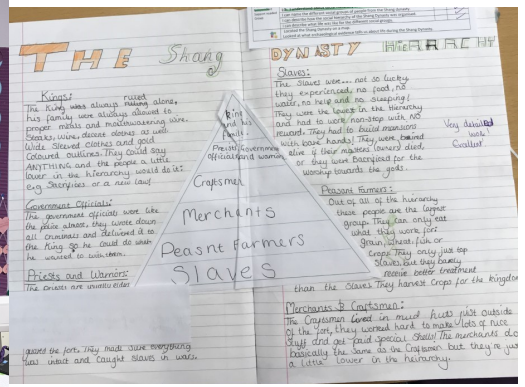 I can name the different social groups of people from the Shang Dynasty
I can describe how the social hierarchy of the Shang Dynasty was organised
I can describe what life was like for the different social groups.
THE Shang DYNASTY HIERARCHY
Kings:
The King always ruled alone,
his family were always allowed to
proper meals and mouthwatering wine.
Steaks, wine, decent clothes as well.
Wide Sleeved clothes and gold
Coloured outlines. They could say
ANYTHING and the people a little
lower in the hierarchy would do it:
e.g Sacrifices or a new law!
Government Officials:
The government officials were like
the police almost, they wrote down
all criminals and delivered it to
the King so he could do what
he wanted to with them.
Priests and Warriors:
The priests are usually
guard the fort. They made sure everything
was intact and caught slaves in wars.
King
and his
family.
Priests, Government
officials and warriors
Craftsmen
Merchants
Peasnt Farmers
Slaves
Slaves:
The slaves were... not so lucky
they experienced, no food, no
water, no help and no sleeping!
They were the lowest in the Hierarchy
and had to work non-stop with NO
reward. They had to build mansions
with bare hands! They were buried
alive if their masters (owners) died,
or they were sacrificed for the
worship towards the gods.
Very detailed
work!
Excellent
Peasant Farmers:
Out of all of the hierarchy
these people are the largest
group. They can only eat
what they work for:
grain, wheat, fish or
crops. They only just top
slaves, but they barely
receive better treatment
than the slaves. They harvest crops for the kingdom
Merchants & Craftsmen:
The Craftsmen lived in mud huts just outside
of the fort, they worked hard to make lots of nice
stuff and get paid special Shells! The merchants do
basically the same as the Craftsmen but they're just
a little lower in the heirarchy.